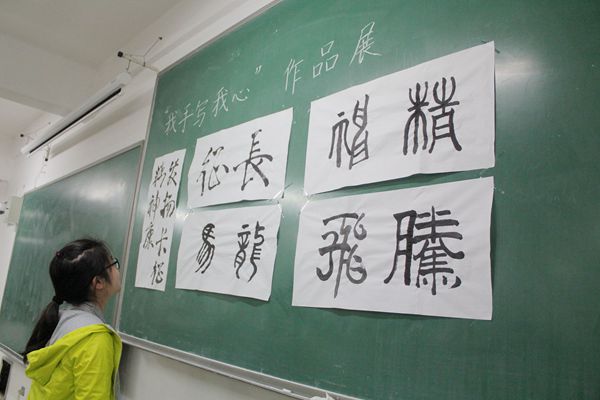 “我手写我心” 作品展
長征
精神
龍馬
騰飛